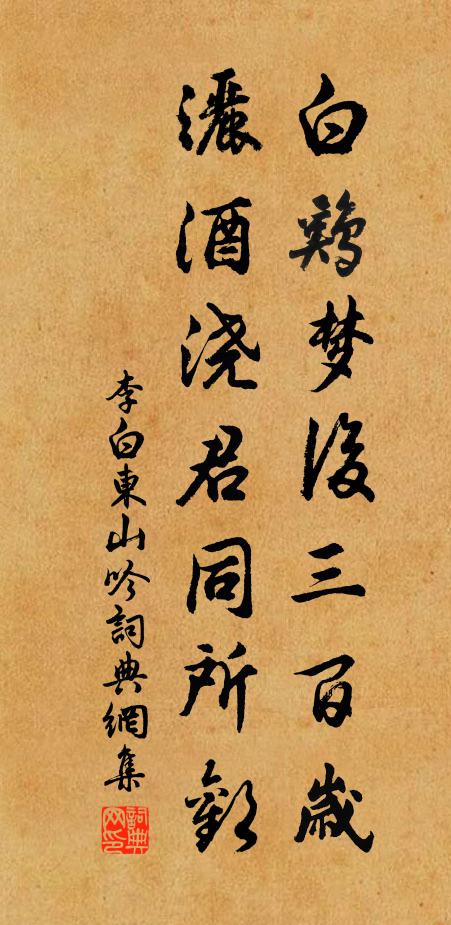 白鷄梦後三百歲
灑酒浇君同所歡
李白東山吟詞典網集
詞典网印